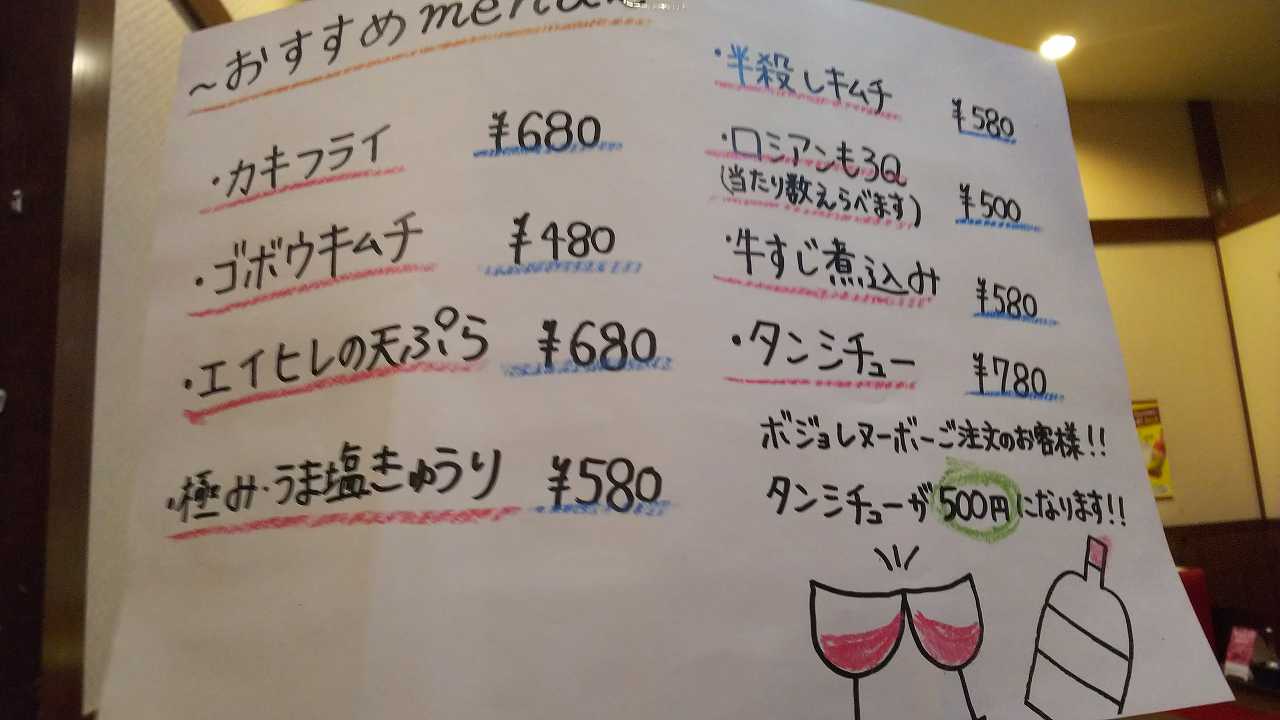 〜おすすめmenu
・カキフライ ¥680
・ゴボウキムチ ¥480
・エイヒレの天ぷら ¥680
・極み・うま塩きゅうり ¥580
・半殺しキムチ ¥580
・ロシアンも3Q
(当たり数えらべます) ¥500
・牛すじ煮込み ¥580
・タンシチュー ¥780
ボジョレヌーボーご注文のお客様!!
タンシチューが500円になります!!